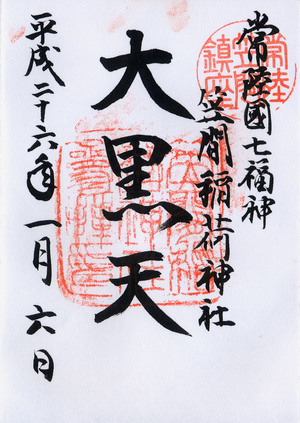 常陸國七福神
笠間稲荷神社
大黒天
平成二十六年一月六日